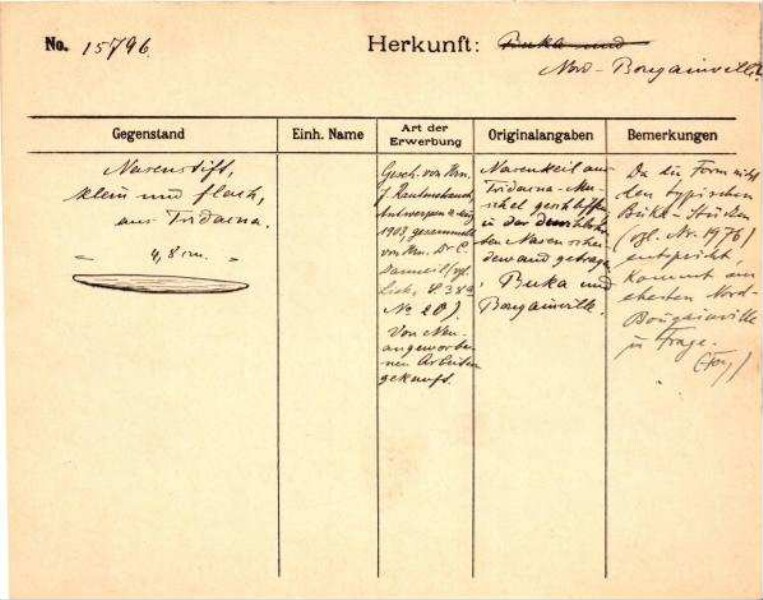 No. 15796.
Herkunft: Buka und
Nord-Bougainville.
Gegenstand
Einh. Name
Art der
Erwerbung
Originalangaben
Bemerkungen
Nasenstift,
klein und flach,
aus Tridacna.
4,8 cm.
Gesch. von Hrn.
J.
Antwerpen
1903, gesammelt
von Hrn. Dr C.
(vgl.
S. 38a
No 20).
Von Neu-
angeworbe-
nen Arbeitern
gekauft.
Nasenkeil aus
Tridacna-Mu-
schel geschliffen
in der durchbohr-
ten Nasenschei-
dewand getragen
Buka und
Bougainville.
Da die Form nicht
den typischen
Buka-Stücken
(vgl. Nr. 1976)
entspricht,
kommt am
ehesten Nord-
Bougainville
in Frage.
(Foy)